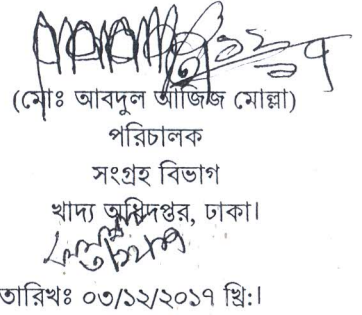 (মোঃ আবদুল আজিজ মোল্লা)
পরিচালক
সংগ্রহ বিভাগ
খাদ্য অধিদপ্তর, ঢাকা।
তারিখঃ ০৩/১২/২০১৭ খ্রি:।